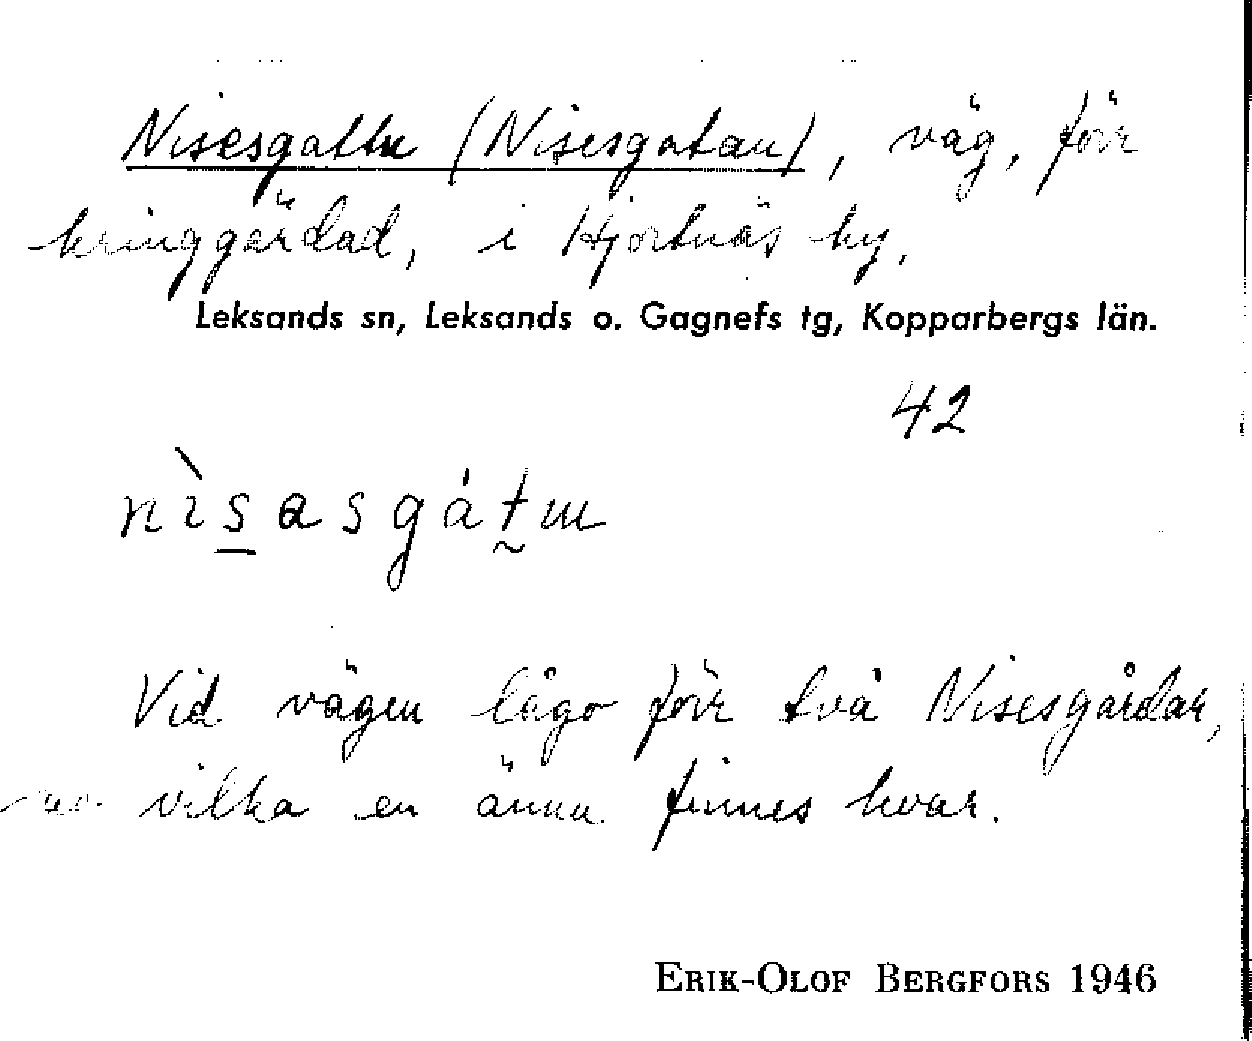 Nisesgattn (Nisesgatan), väg, förr
kringgärdad, i Hjortnäs by.
Leksands sn, Leksands o. Gagnefs tg, Kopparbergs län.
42
nìsasgátm
Vid vägen lågo förr två Nisesgårdar,
av vilka en ännu finnes kvar.
ERIK-OLOF BERGFORS 1946